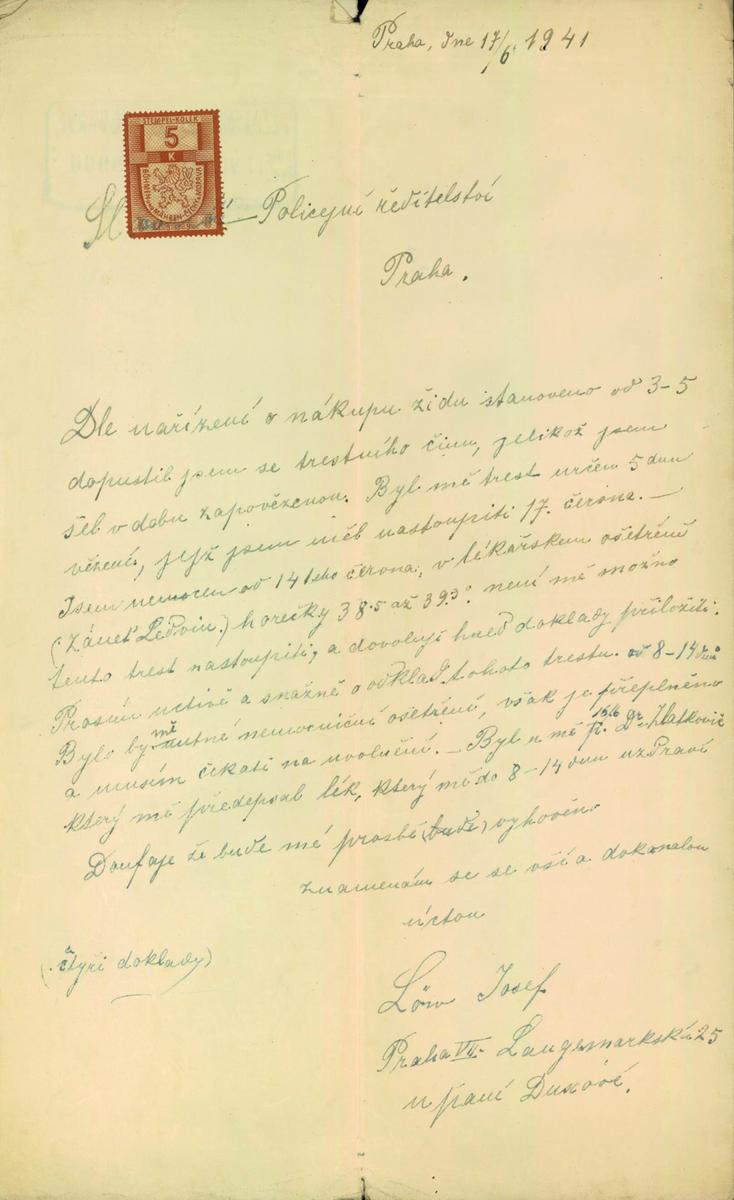 Praha, dne 17/6 1941
STEMPEL-KOLEK
5
K
BÖHMEN-MÄHREN-ČECHY-MORAVA
Policejní ředitelství
Praha.
Dle nařízení o nákupu židu stanoveno od 3-5
dopustil jsem se trestního činu, jelikož jsem
šel v dobu zapovězenou. Byl mě trest určen 5 dnu
vězení, jejž jsem měl nastoupiti 17. června. —
Jsem nemocen od 14 teho června, v lékářskem ošetřéně
(Zánět Ledvin.) horečky 38.5 až 39.3°. není mě možno
tento trest nastoupiti, a dovoluji hned doklady přiložiti.
Prosím uctivě a snažně o odklad tohoto trestu. od 8-14 dnů
Bylo by mě nutné nemocniční ošetření, však je přeplněno
a musím čekati na uvolnění. — Byl u mě 15/6 p. Dr. Zlatkovič
který mě předepsal lék, který mě do 8-14 dnu uzPraví
Doufaje že bude mé prosbě (bude) vyhověno
znamenám se se vší a dokonalou
úctou
(čtyři doklady)
Löw Josef
Praha VII. Langemarkská 25
u paní Duxové.